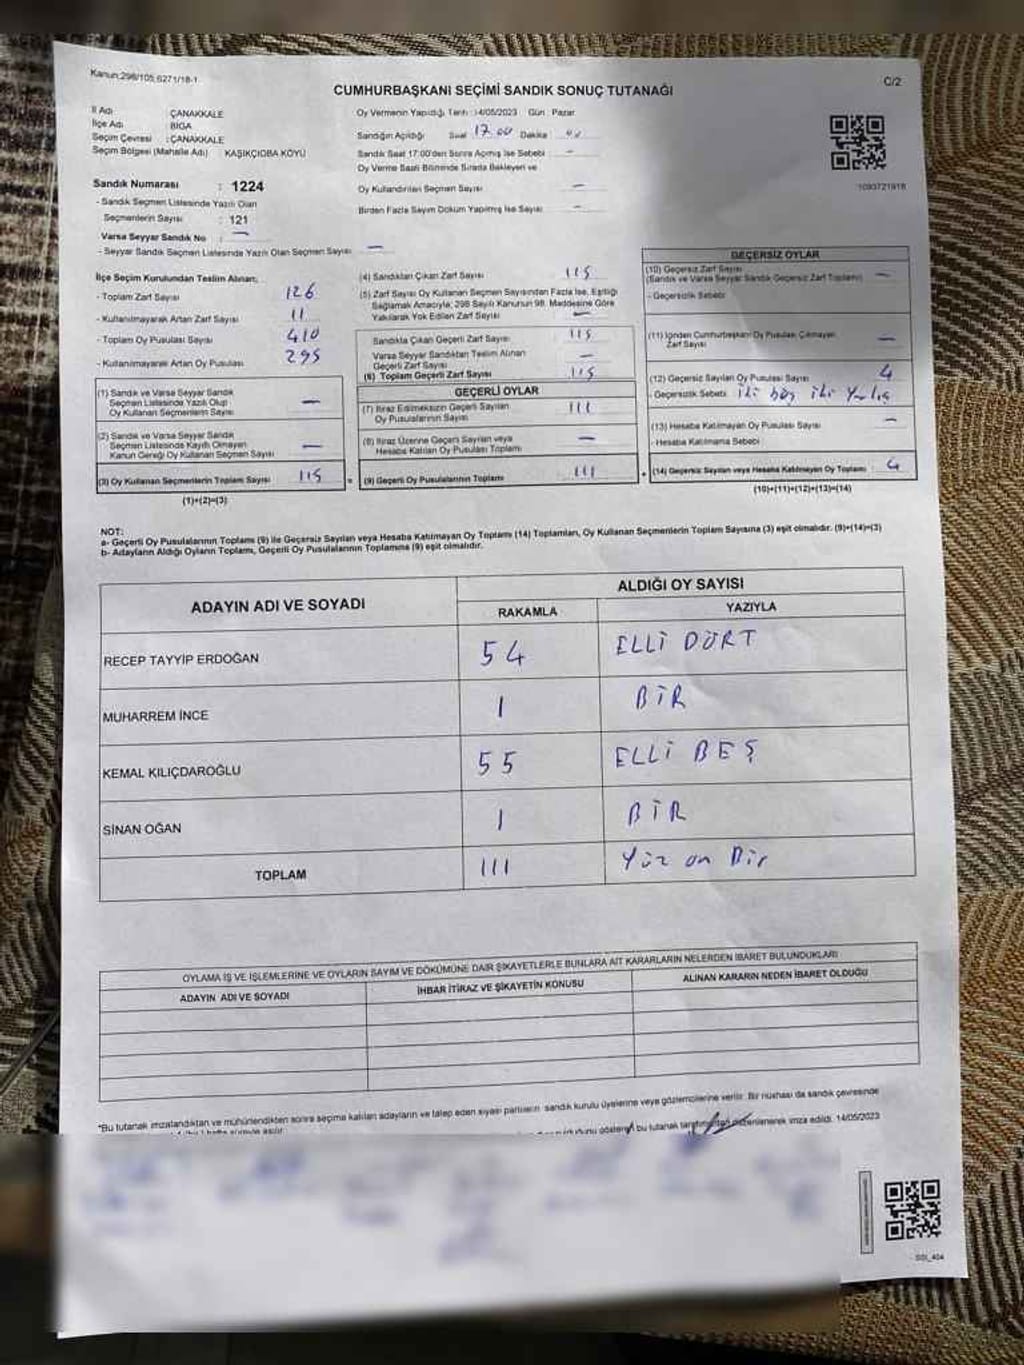 Kanun:298/105,6271/18-1
C/2
CUMHURBAŞKANI SEÇİMİ SANDIK SONUÇ TUTANAĞI
İl Adı ÇANAKKALE
İlçe Adı BİGA
Seçim Çevresi : ÇANAKKALE
Seçim Bölgesi (Mahalle Adı) : KAŞIKÇIOBA KÖYÜ
Oy Vermenin Yapıldığı Tarih :14/05/2023 Gün : Pazar
Sandığın Açıldığı Saat 17.00 Dakika
Sandık Saat 17:00'den Sonra Açılmış İse Sebebi : -
Oy Verme Saati Bitiminde Sırada Bekleyen ve
Oy Kullandırılan Seçmen Sayısı -
Birden Fazla Sayım Döküm Yapılmış İse Sayısı -
1093721918
Sandık Numarası : 1224
- Sandık Seçmen Listesinde Yazılı Olan
Seçmenlerin Sayısı : 121
Varsa Seyyar Sandık No : -
- Seyyar Sandık Seçmen Listesinde Yazılı Olan Seçmen Sayısı -
İlçe Seçim Kurulundan Teslim Alınan;
- Toplam Zarf Sayısı 126
- Kullanılmayarak Artan Zarf Sayısı 11
- Toplam Oy Pusulası Sayısı 410
- Kullanılmayarak Artan Oy Pusulası 295
(1) Sandık ve Varsa Seyyar Sandık
Seçmen Listesinde Yazılı Olup
Oy Kullanan Seçmenlerin Sayısı -
(2) Sandık ve Varsa Seyyar Sandık
Seçmen Listesinde Kayıtlı Olmayan
Kanun Gereği Oy Kullanan Seçmen Sayısı -
(3) Oy Kullanan Seçmenlerin Toplam Sayısı 115
(1)+(2)=(3)
(4) Sandıktan Çıkan Zarf Sayısı 115
(5) Zarf Sayısı Oy Kullanan Seçmen Sayısından Fazla İse, Eşitliği
Sağlamak Amacıyla; 298 Sayılı Kanunun 98. Maddesine Göre
Yakılarak Yok Edilen Zarf Sayısı -
Sandıkta Çıkan Geçerli Zarf Sayısı 115
Varsa Seyyar Sandıktan Teslim Alınan
Geçerli Zarf Sayısı -
(6) Toplam Geçerli Zarf Sayısı 115
GEÇERLİ OYLAR
(7) İtiraz Edilmeksizin Geçerli Sayılan
Oy Pusulasının Sayısı 111
(8) İtiraz Üzerine Geçerli Sayılan veya
Hesaba Katılan Oy Pusulası Toplamı -
= (9) Geçerli Oy Pusulalarının Toplamı 111
GEÇERSİZ OYLAR
(10) Geçersiz Zarf Sayısı
(Sandık ve Varsa Seyyar Sandık Geçersiz Zarf Toplamı) -
- Geçersizlik Sebebi
(11) İçinden Cumhurbaşkanı Oy Pusulası Çıkmayan
Zarf Sayısı -
(12) Geçersiz Sayılan Oy Pusulası Sayısı 4
- Geçersizlik Sebebi iki boş iki
(13) Hesaba Katılmayan Oy Pusulası Sayısı -
- Hesaba Katılmama Sebebi
+ (14) Geçersiz Sayılan veya Hesaba Katılmayan Oy Toplamı 4
(10)+(11)+(12)+(13)=(14)
NOT:
a- Geçerli Oy Pusulalarının Toplamı (9) ile Geçersiz Sayılan veya Hesaba Katılmayan Oy Toplamı (14) Toplamları, Oy Kullanan Seçmenlerin Toplam Sayısına (3) eşit olmalıdır. (9)+(14)=(3)
b- Adayların Aldığı Oyların Toplamı, Geçerli Oy Pusulalarının Toplamına (9) eşit olmalıdır.
ADAYIN ADI VE SOYADI
ALDIĞI OY SAYISI
RAKAMLA YAZIYLA
RECEP TAYYİP ERDOĞAN 54 ELLİ DÖRT
MUHARREM İNCE 1 BİR
KEMAL KILIÇDAROĞLU 55 ELLİ BEŞ
SİNAN OĞAN 1 BİR
TOPLAM 111 Yüz on Bir
OYLAMA İŞ VE İŞLEMLERİNE VE OYLARIN SAYIM VE DÖKÜMÜNE DAİR ŞİKAYETLERLE BUNLARA AİT KARARLARIN NELERDEN İBARET BULUNDUKLARI
ADAYIN ADI VE SOYADI İHBAR İTİRAZ VE ŞİKAYETİN KONUSU ALINAN KARARIN NEDEN İBARET OLDUĞU
*Bu tutanak imzalandıktan ve mühürlendikten sonra seçime katılan adayların ve talep eden siyasi partilerin sandık kurulu üyelerine veya gözlemcilerine verilir. Bir nüshası da sandık çevresinde
bu tutanak düzenlenerek imza edildi. 14/05/2023